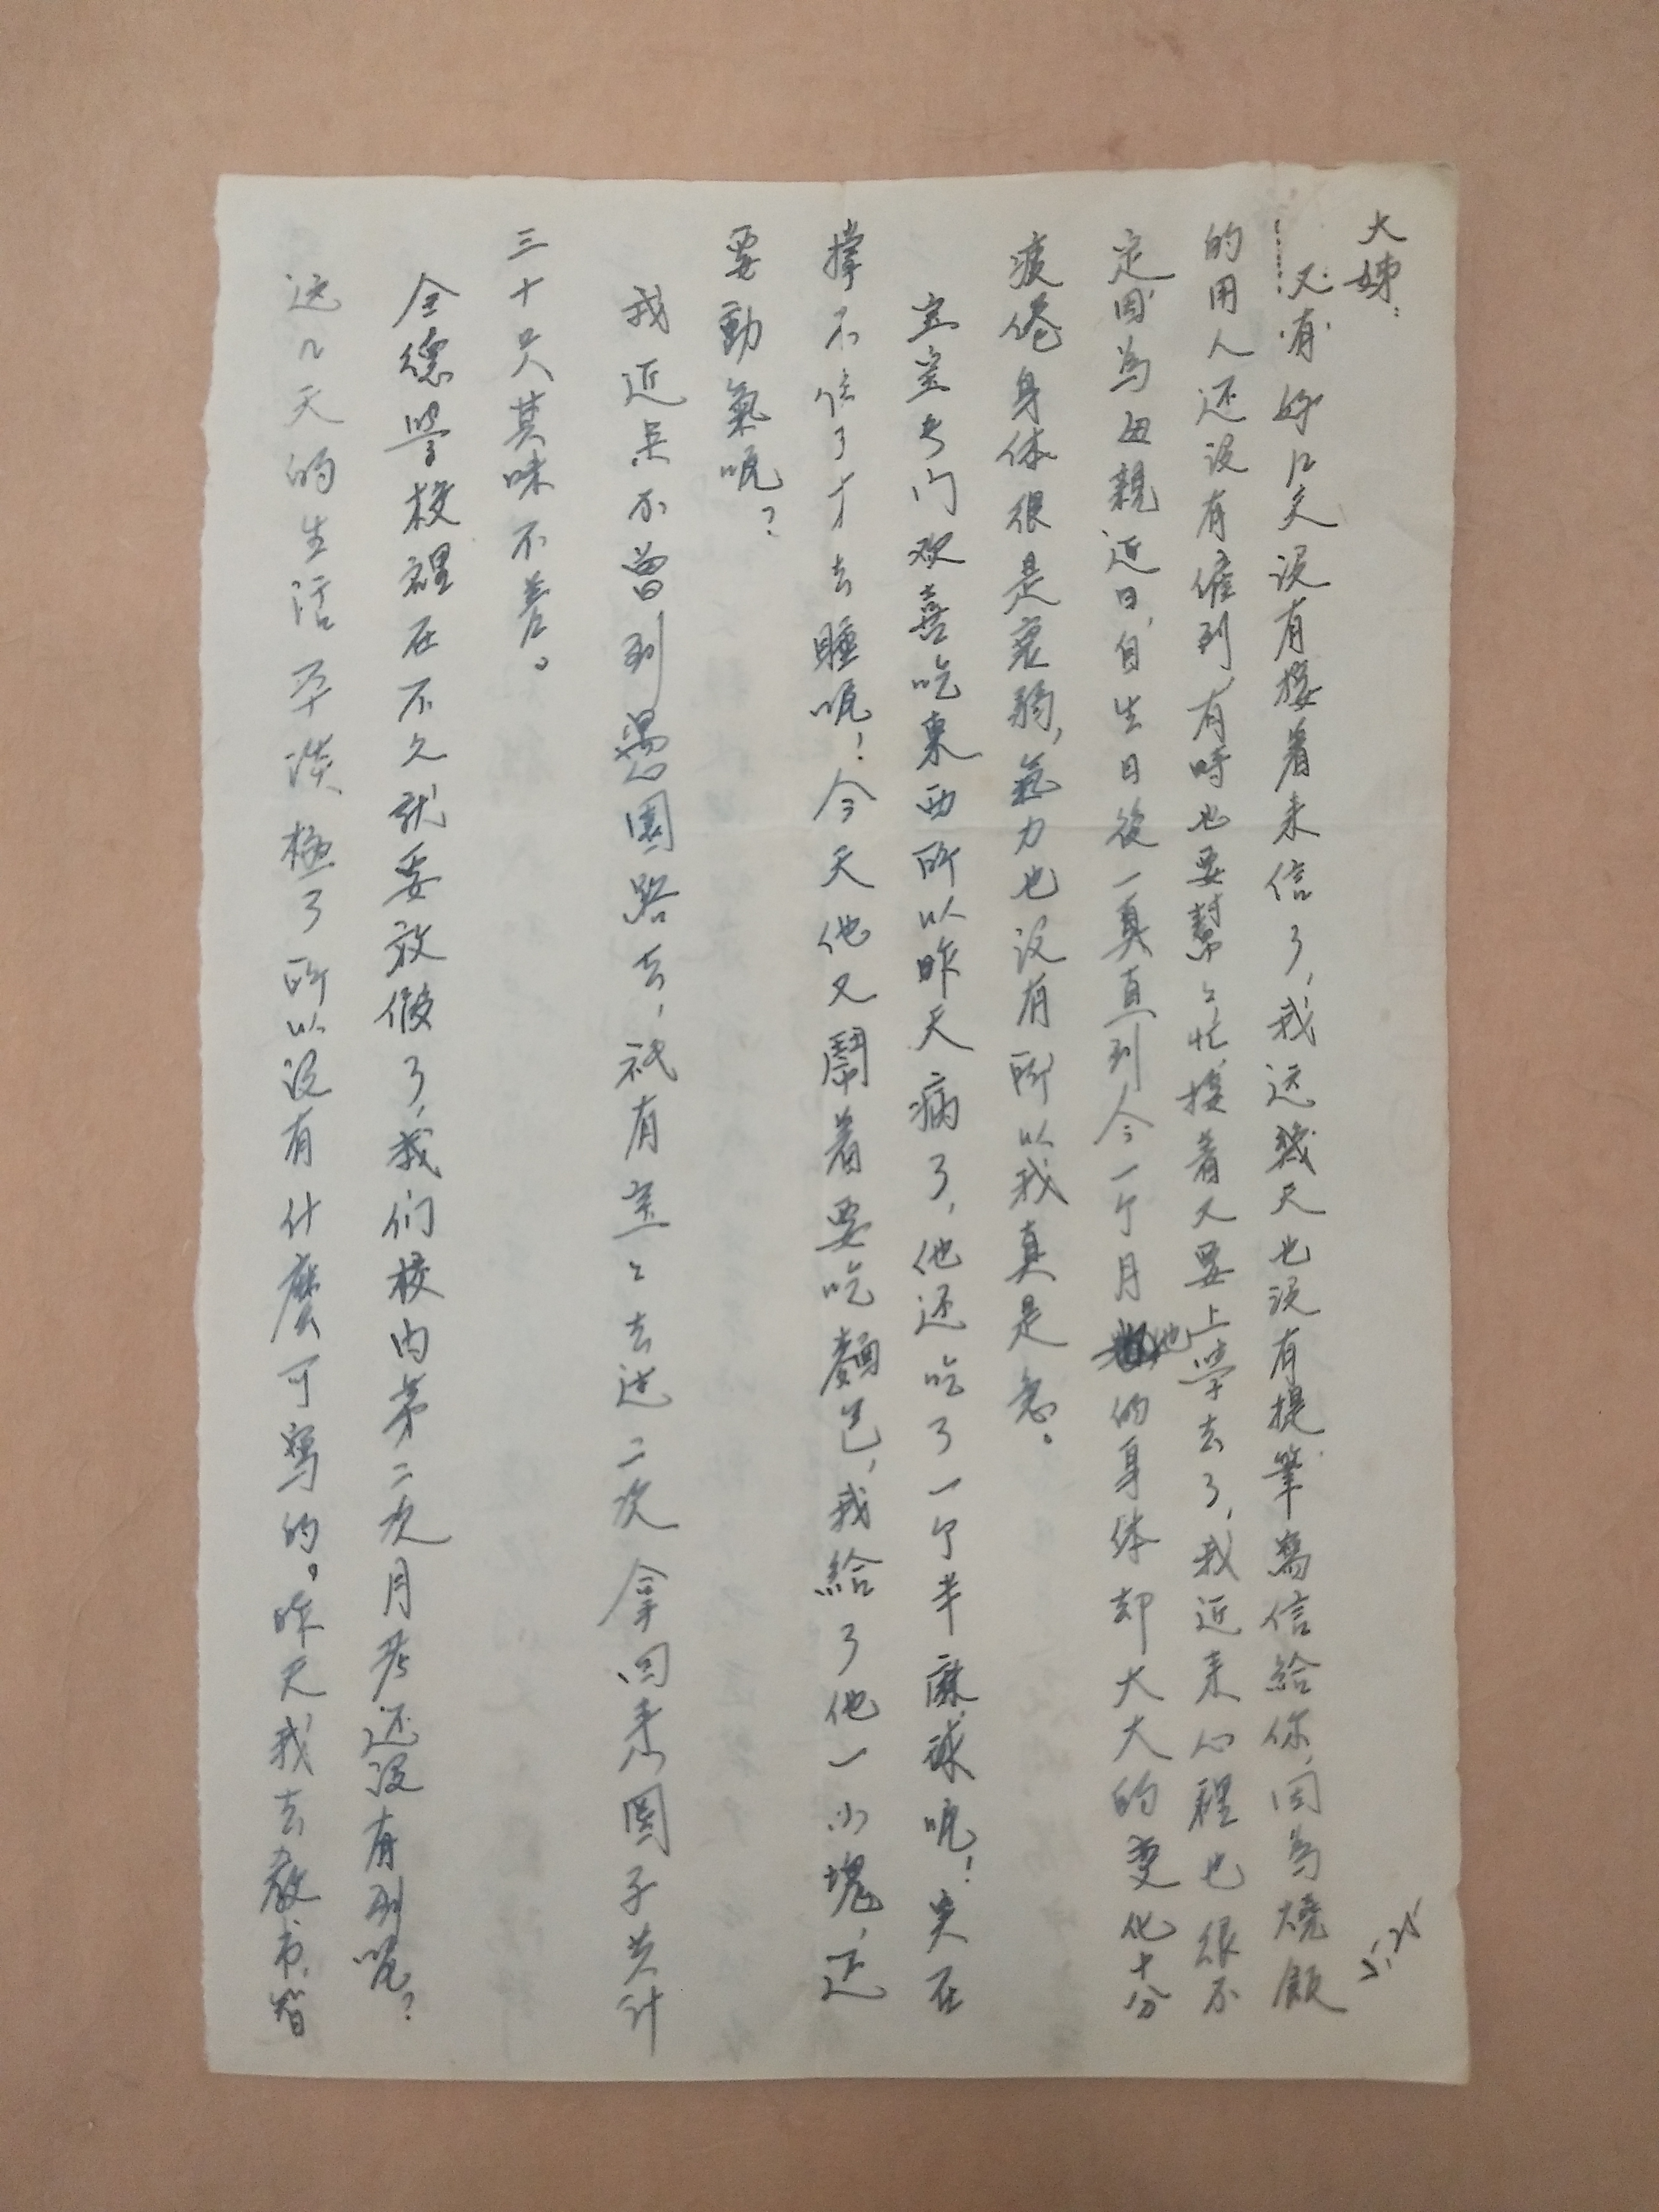 大姊：
又有好几天没有接着来信了，我这幾天也没有提筆寫信給你，因为燒飯
的用人还没有僱到，有時也要幫々忙，接着又要上學去了，我近来心裡也很不
定，因為母親近日，自生日後一真直到今一个月他的身体却大大的变化十分
疲倦身体很是衰弱，氣力也没有所以我真是急。
宝宝专门欢喜吃東西所以昨天病了，他还吃了一个半麻球呢！实在
撑不住了才去睡呢！今天他又鬧着要吃麵包，我給了他一小塊，还
要動氣呢？
我近来不曾到愚園路去，祇有宝々去过二次拿回来圆子共计
三十只其味不差。
全德學校裡在不久就要放假了，我们校内第二次月考还没有到呢？
这几天的生活平淡極了所以没有什麽可寫的。昨天我去教书，皆
5.25